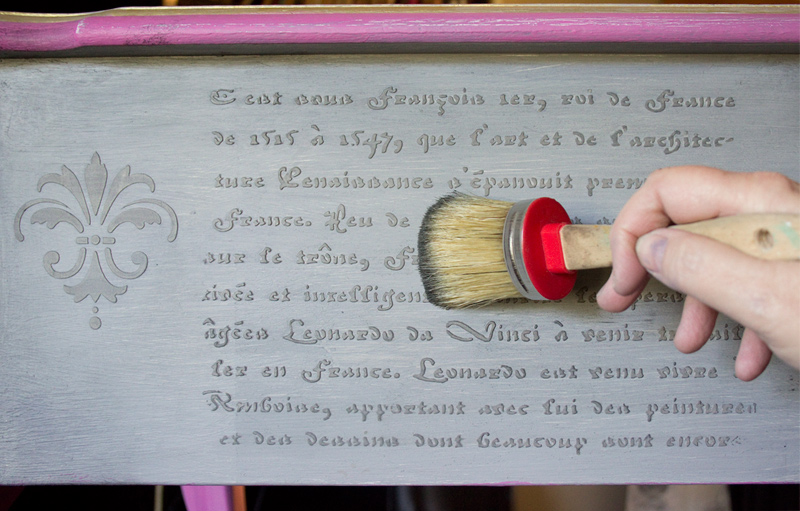 C'est sous François 1er, roi de France
de 1515 à 1547, que l'art et de l'architec-
ture Renaissance s'épanouit
France. Peu de
sur le trône,
et intelligen
âgées Leonardo da Vinci à venir
ler en France. Leonardo est venu vivre
Amboise, apportant avec lui des peintures
et des dessins dont beaucoup sont encore